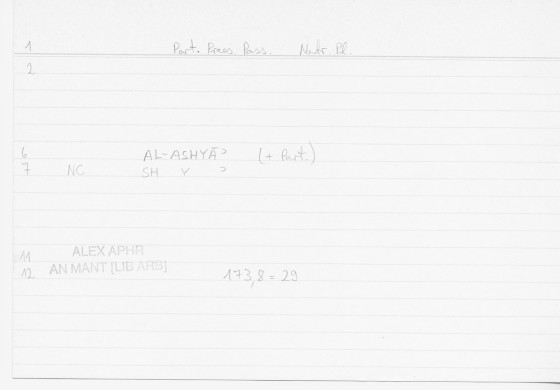 1 Part. Praes. Pass. Neutr Pl.
2
6 AL-ASHYĀʾ (+ Part.)
7 NC SH Y ʾ
11 ALEX APHR
12 AN MANT [LIB ARB] 173,8 = 29